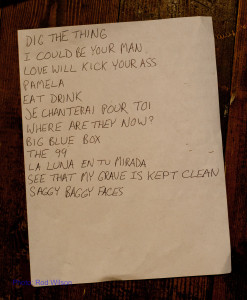 DIG THE THING
I COULD BE YOUR MAN
LOVE WILL KICK YOUR ASS
PAMELA
EAT DRINK
JE CHANTERAI POUR TOI
WHERE ARE THEY NOW?
BIG BLUE BOX
THE 99
LA LUNA EN TU MIRADA
SEE THAT MY GRAVE IS KEPT CLEAN
SAGGY BAGGY FACES
Rod Wilson